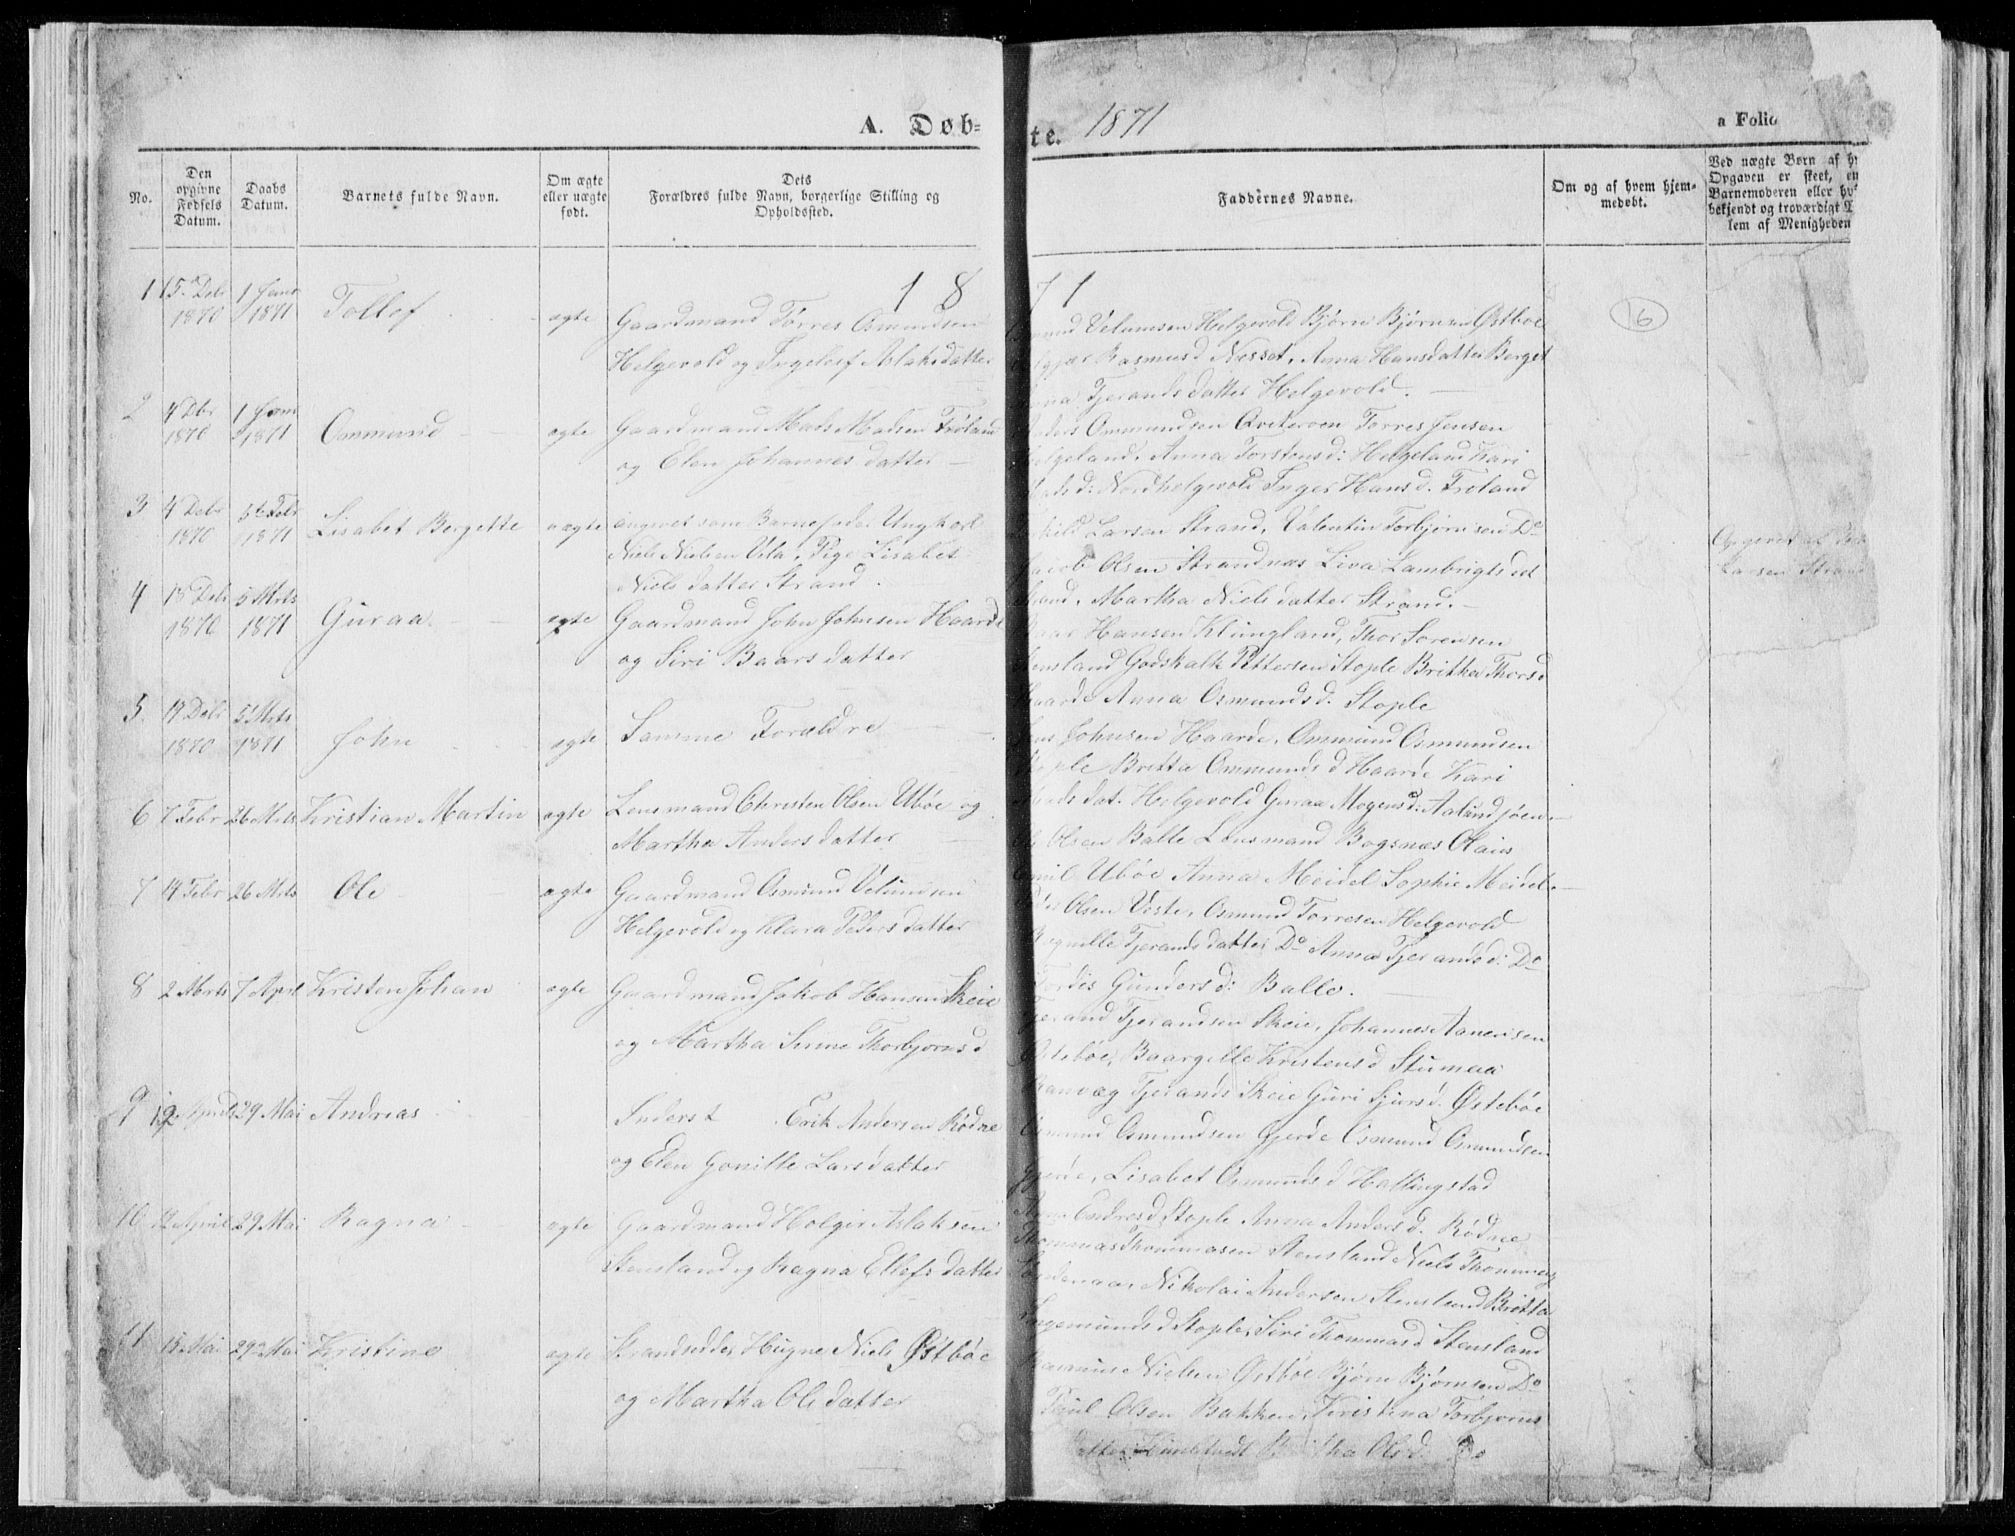 A. Døb=
te. 1871
a Folio
No.
Den opgivne Fødsels Datum.
Daabs Datum.
Barnets fulde Navn.
Om ægte eller uægte født.
Dets Forældres fulde Navn, borgerlige Stilling og Opholdssted.
Faddernes Navne.
Om og af hvem hjem=
medøbt.
Ved uægte Børn af h
Opgaven er skeet, en
Barnemoderen eller hv
bekjendt og troværdigt
lem af Menigheden
1 8 7 1
6
1 15 Debr 1870 1 Janr 1871 Tollef ægte Gaardmand Tørres Osmundsen
Helgevold og Ingeleef Aslaksdatter
mund Velumsen Helgevold Bjørn Bjørnsen Østboe
Rasmusd Nesset, Anna Hansdatter Berget
na Tjerandsdatter Helgevold.
2 4 Dbr 1870 1 Janr 1871 Ommund ægte Gaardmand Mads Madsen Frøland
og Elen Johannesdatter
Ommundsen Qviteroen Torres Jensen
elgeland, Anna Torstensd: Helgeland Kari
Madsd: Nordhelgevold Inger Hansd. Froland
3 4 Debr 1870 5te Febr 1871 Lisabet Bergette uægte angivet som Barnefader Ungkarl
Niels Nielsen Vela, Pige Lisabet
Nielsdatter Strand.
Larsen Strand, Valentin Torbjørnsen Do
Jacob Olsen Strandnæs Liva Lambrigtsdt
Strand, Martha Nielsdatter Strand.
Opgivet af
Larsen Strand
4 18 Debr 1870 5 Mrts 1871 Guraa ægte Gaardmand John Johnsen Haarde
og Siri Baarsdatter
Baar Hansen Klungland, Thor Sorensen
Stensland Godskalk Pettersen Stople Britha Thorsd
Haarde Anna Osmundsd: Stople
5. 19 Debr 1870 5 Mrts 1871 John ægte Samme Forældre
Johnsen Haarde, Ommund Osmundsen
Stople Britta Ommundsd Haarde Kari
Madsdat. Helgevold Guraa Mogensd: Aalundsjøen
6 7 Febr 26 Mrts Kristian Martin ægte Lensmand Christen Olsen Ubøe og
Martha Andersdatter
Olsen Balle Lensmand Bogsnæs Olaus
Emil Ubøe Anna Meidel Sophie Meidel
7 14 Febr 26 Mrts Ole ægte Gaardmand Osmund Velumsen
Helgevold og Klara Pedersdatter
Olsen Veste, Osmund Torresen Helgevold
Tjerandsdatter Do Anna Tjerandsd: Do
Gundersd: Balle.
8 2 Mrts 7 April Kristen Johan ægte Gaardmand Jakob Hansen Skeie
og Martha Serine Thorbjørnsd
Tjerand Tjerandsen Skeie, Johannes Aanensen
Østebøe, Baargille Kristensd Stumaa
Ranvæg Tjerands Skeie Guri Sjursd. Østebøe
9 12 April 29 Mai Andreas Inderst Erik Andersen Rødne
og Elen Gonille Larsdatter
Osmund Osmundsen Gjerde Osmund Osmundsen
Gjerde, Lisabet Osmundsd Hallingstad
Endresd Stople Anna Andersd. Rødne
10 12 April 29 Mai Ragna ægte Gaardmand Holgier Aslaksen
Stensland og Ragna Ellefsdatter
Thommas Thommasen Stensland Niels Thommas
Nikolai Andersen Stensland Britta
Ingemundsd Stople, Siri Thommasd Stensland
11 15 Mai 29 Mai Kristine ægte Strandsidder Hugne Niels Østbøe
og Martha Olsdatter
Rasmus Nielsen Østbøe Bjørn Bjørnsen Do
Poul Olsen Bakken, Kristina Torbjørns
datter Olsd. Do